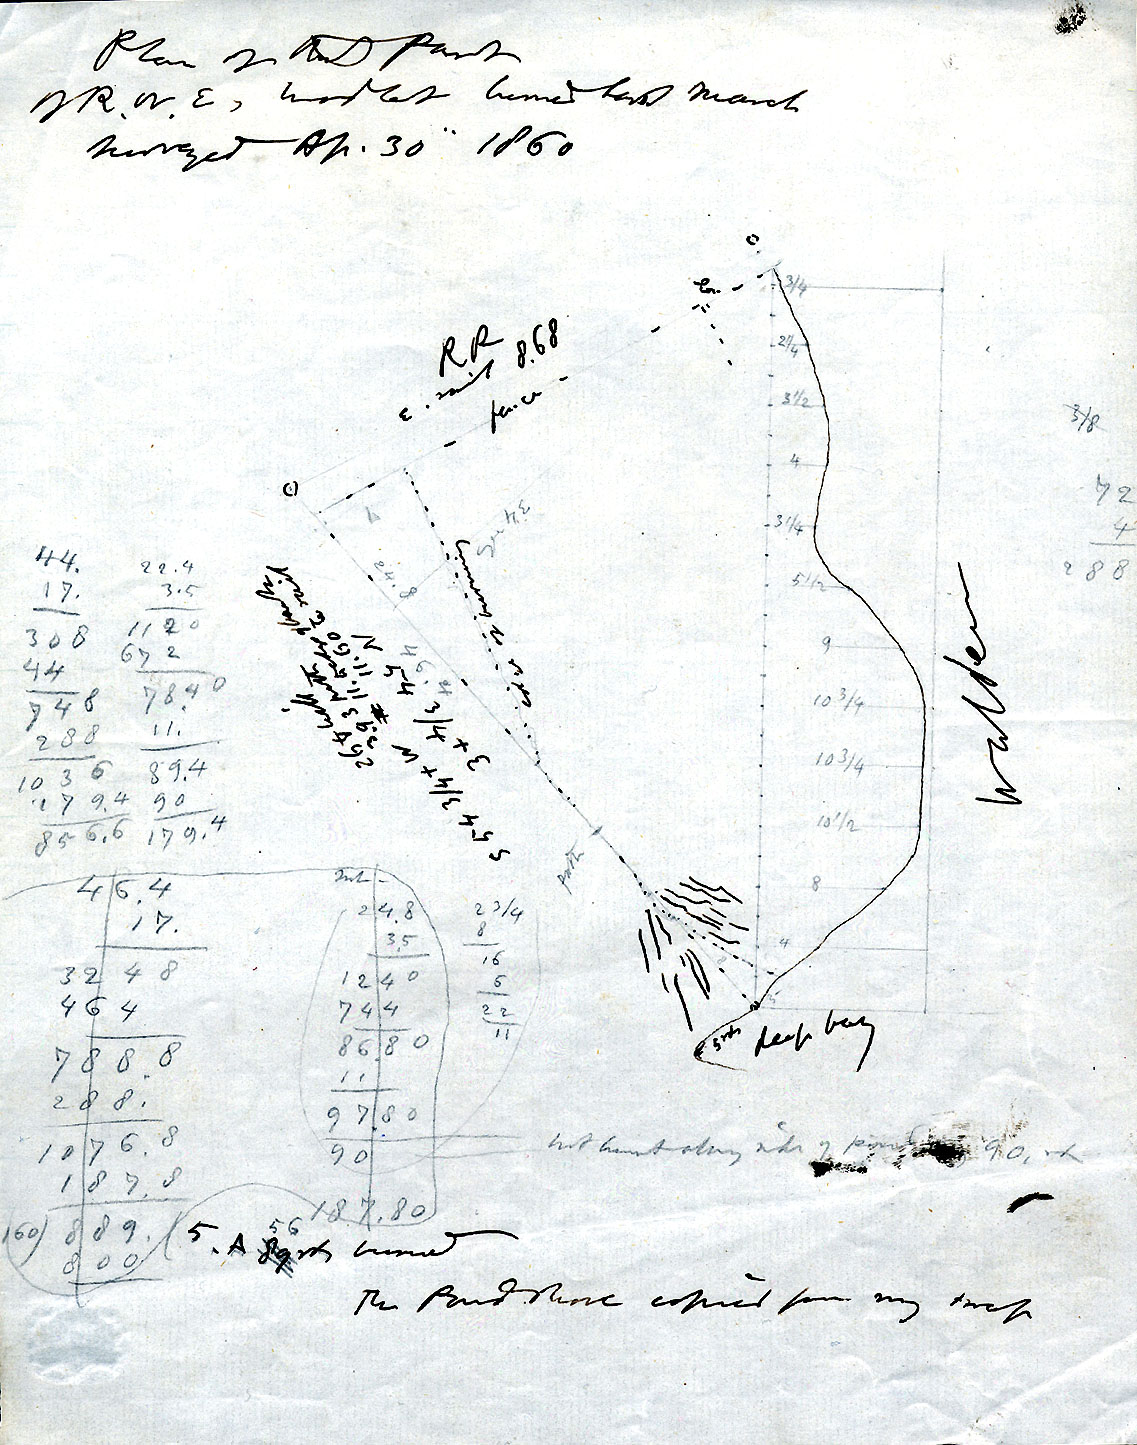 Plan of that Part
of R.W.E.'s woodlot burned last March
surveyed Ap. 30" 1860
3/4
2 1/4
RR
8.68
fence
3 1/2
3/8
4
72
4
288
3 1/4
5 1/2
9
10 3/4
10 3/4
10 1/2
8
4
Walden
24.8
46.4
edge of burning
path
5 rds
deep bay
44.
17.
308
44
748
288
1036
179.4
856.6
22.4
3.5
1120
672
78.40
11.
89.4
90
179.4
46.4
17.
3248
464
788.8
288.
1076.8
187.8
160) 889. (5.A 56 rds burned
800
24.8
3.5
1240
744
86.80
11
97.80
90
187.80
2 3/4
8
16
6
22
11
not burnt along side of pond 90.
The Pond shore copied from my map